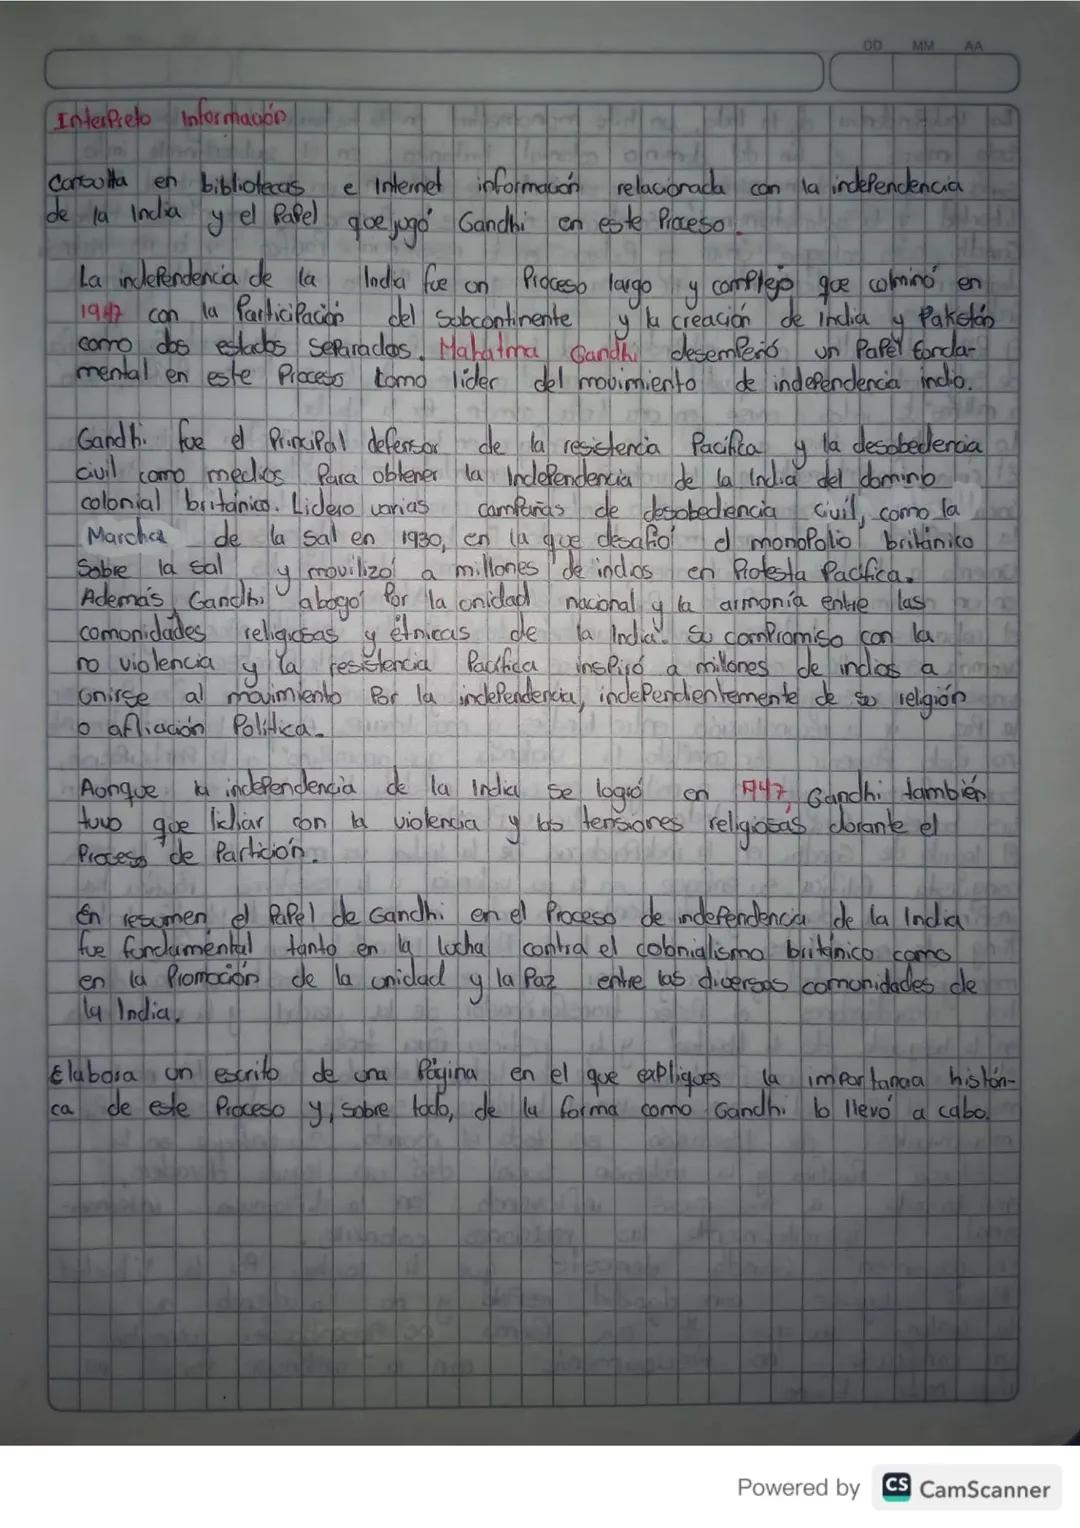 DD MM AA
Interpreto Información
Consulta en bibliotecas e Internet información relacionada con la independencia
de la India y el Papel que jugó Gandhi en este Proceso.
La independencia de la India fue un Proceso largo y complejo que culminó en
1947 con la Participación del subcontinente y la creación de India y Pakistán
como dos estados separados. Mahatma Gandhi desempeñó un Papel funda-
mental en este Proceso como lider del movimiento de independencia indio.
Gandhi fue el Principal defensor de la resistencia Pacifica y la desobediencia
civil como medios Para obtener la Independencia de la India del dominio
colonial británico. Lidero varias campañas de desobediencia civil, como la
Marcha de la sal en 1930, en la que desafió el monopolio británico
Sobre la sal y movilizó a millones de indios en Protesta Pacifica.
Además Gandhi abogó Por la unidad nacional y la armonía entre las
comunidades religiosas y étnicas de la India. Su compromiso con la
no violencia y la resistencia Pacifica inspiró a millones de indios a
unirse al movimiento Por la independencia, independientemente de su religión
o afiliación Política.
Aunque la independencia de la India se logró en 1947, Gandhi también
tuvo que lidiar con la violencia y las tensiones religiosas durante el
Proceso de Partición.
En resumen el Papel de Gandhi en el Proceso de independencia de la India
fue fundamental tanto en la lucha contra el colonialismo británico como
en la Promoción de la unidad y la Paz entre las diversas comunidades de
la India.
Elabora un escrito de una Página en el que expliques la importancia históri-
ca de este Proceso y, sobre todo, de la forma como Gandhi lo llevó a cabo.
Powered by CS CamScanner